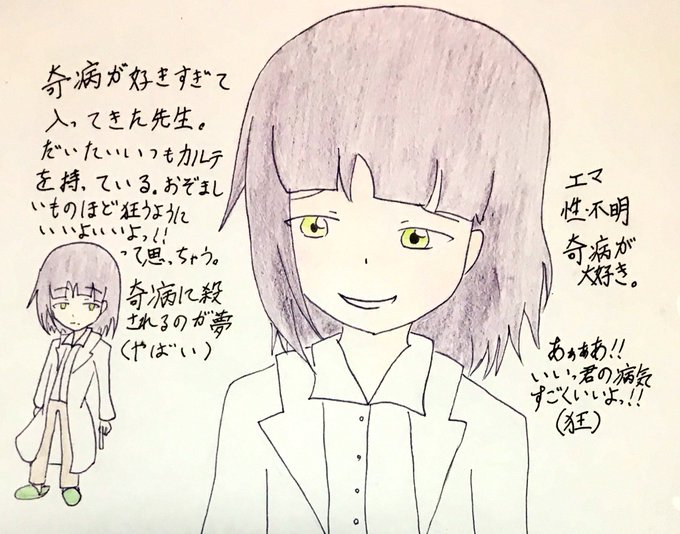 奇病が好きすぎて
入ってきた先生。
だいたいいつもカルテ
を持っている。おぞまし
いものほど狂うように
いいよいいよっ!!
って思っちゃう。
奇病に殺
されるのが夢
(やばい)
エマ
性・不明
奇病が
大好き。
あぁぁあ!!
いいっ君の病気
すごくいいよっ!!
(狂)